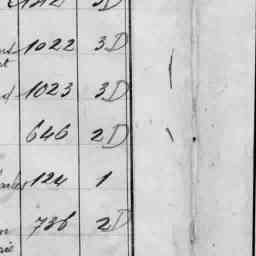 1022 3D
1023 3D
646 2D
124 1
736 2D